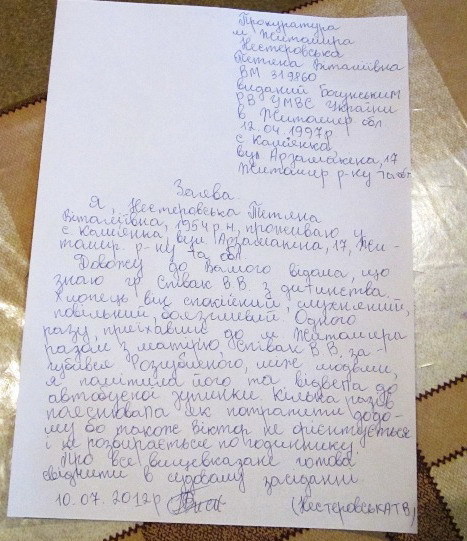 Прокуратура
м Житомира
Нестеровська
Тетяна Віталіївна
ВМ 319860
виданий Богунським
РВ УМВС України
в Житомир обл
12.04.1997р
с Кам'янка
вул Арзамакена, 17
Житомир р-ну та обл
Заява.
Я, Нестеровська Тетяна
Віталіївна, 1954 р н, проживаю у
с Кам'янка, вул. Арзамакена, 17, Жи-
томир. р-ну та обл
Довожу до Вашого відома, що
знаю гр Співак В.В з дитинства.
Хлопець він спокійний, слухняний,
повільний, боязливий. Одного
разу, приїхавши до м Житомира
разом з матір'ю, Співак В В, за-
губився Розгублений, між людьми,
я помітила його та відвела до
автобусної зупинки. Кілька разів
пояснювала як потрапити додо-
му бо також Віктор не орієнтується
і не розбирається по годиннику.
Про все вищевказане готова
свідчити в судовому засіданні
10.07.2012р (Нестеровська ТВ)